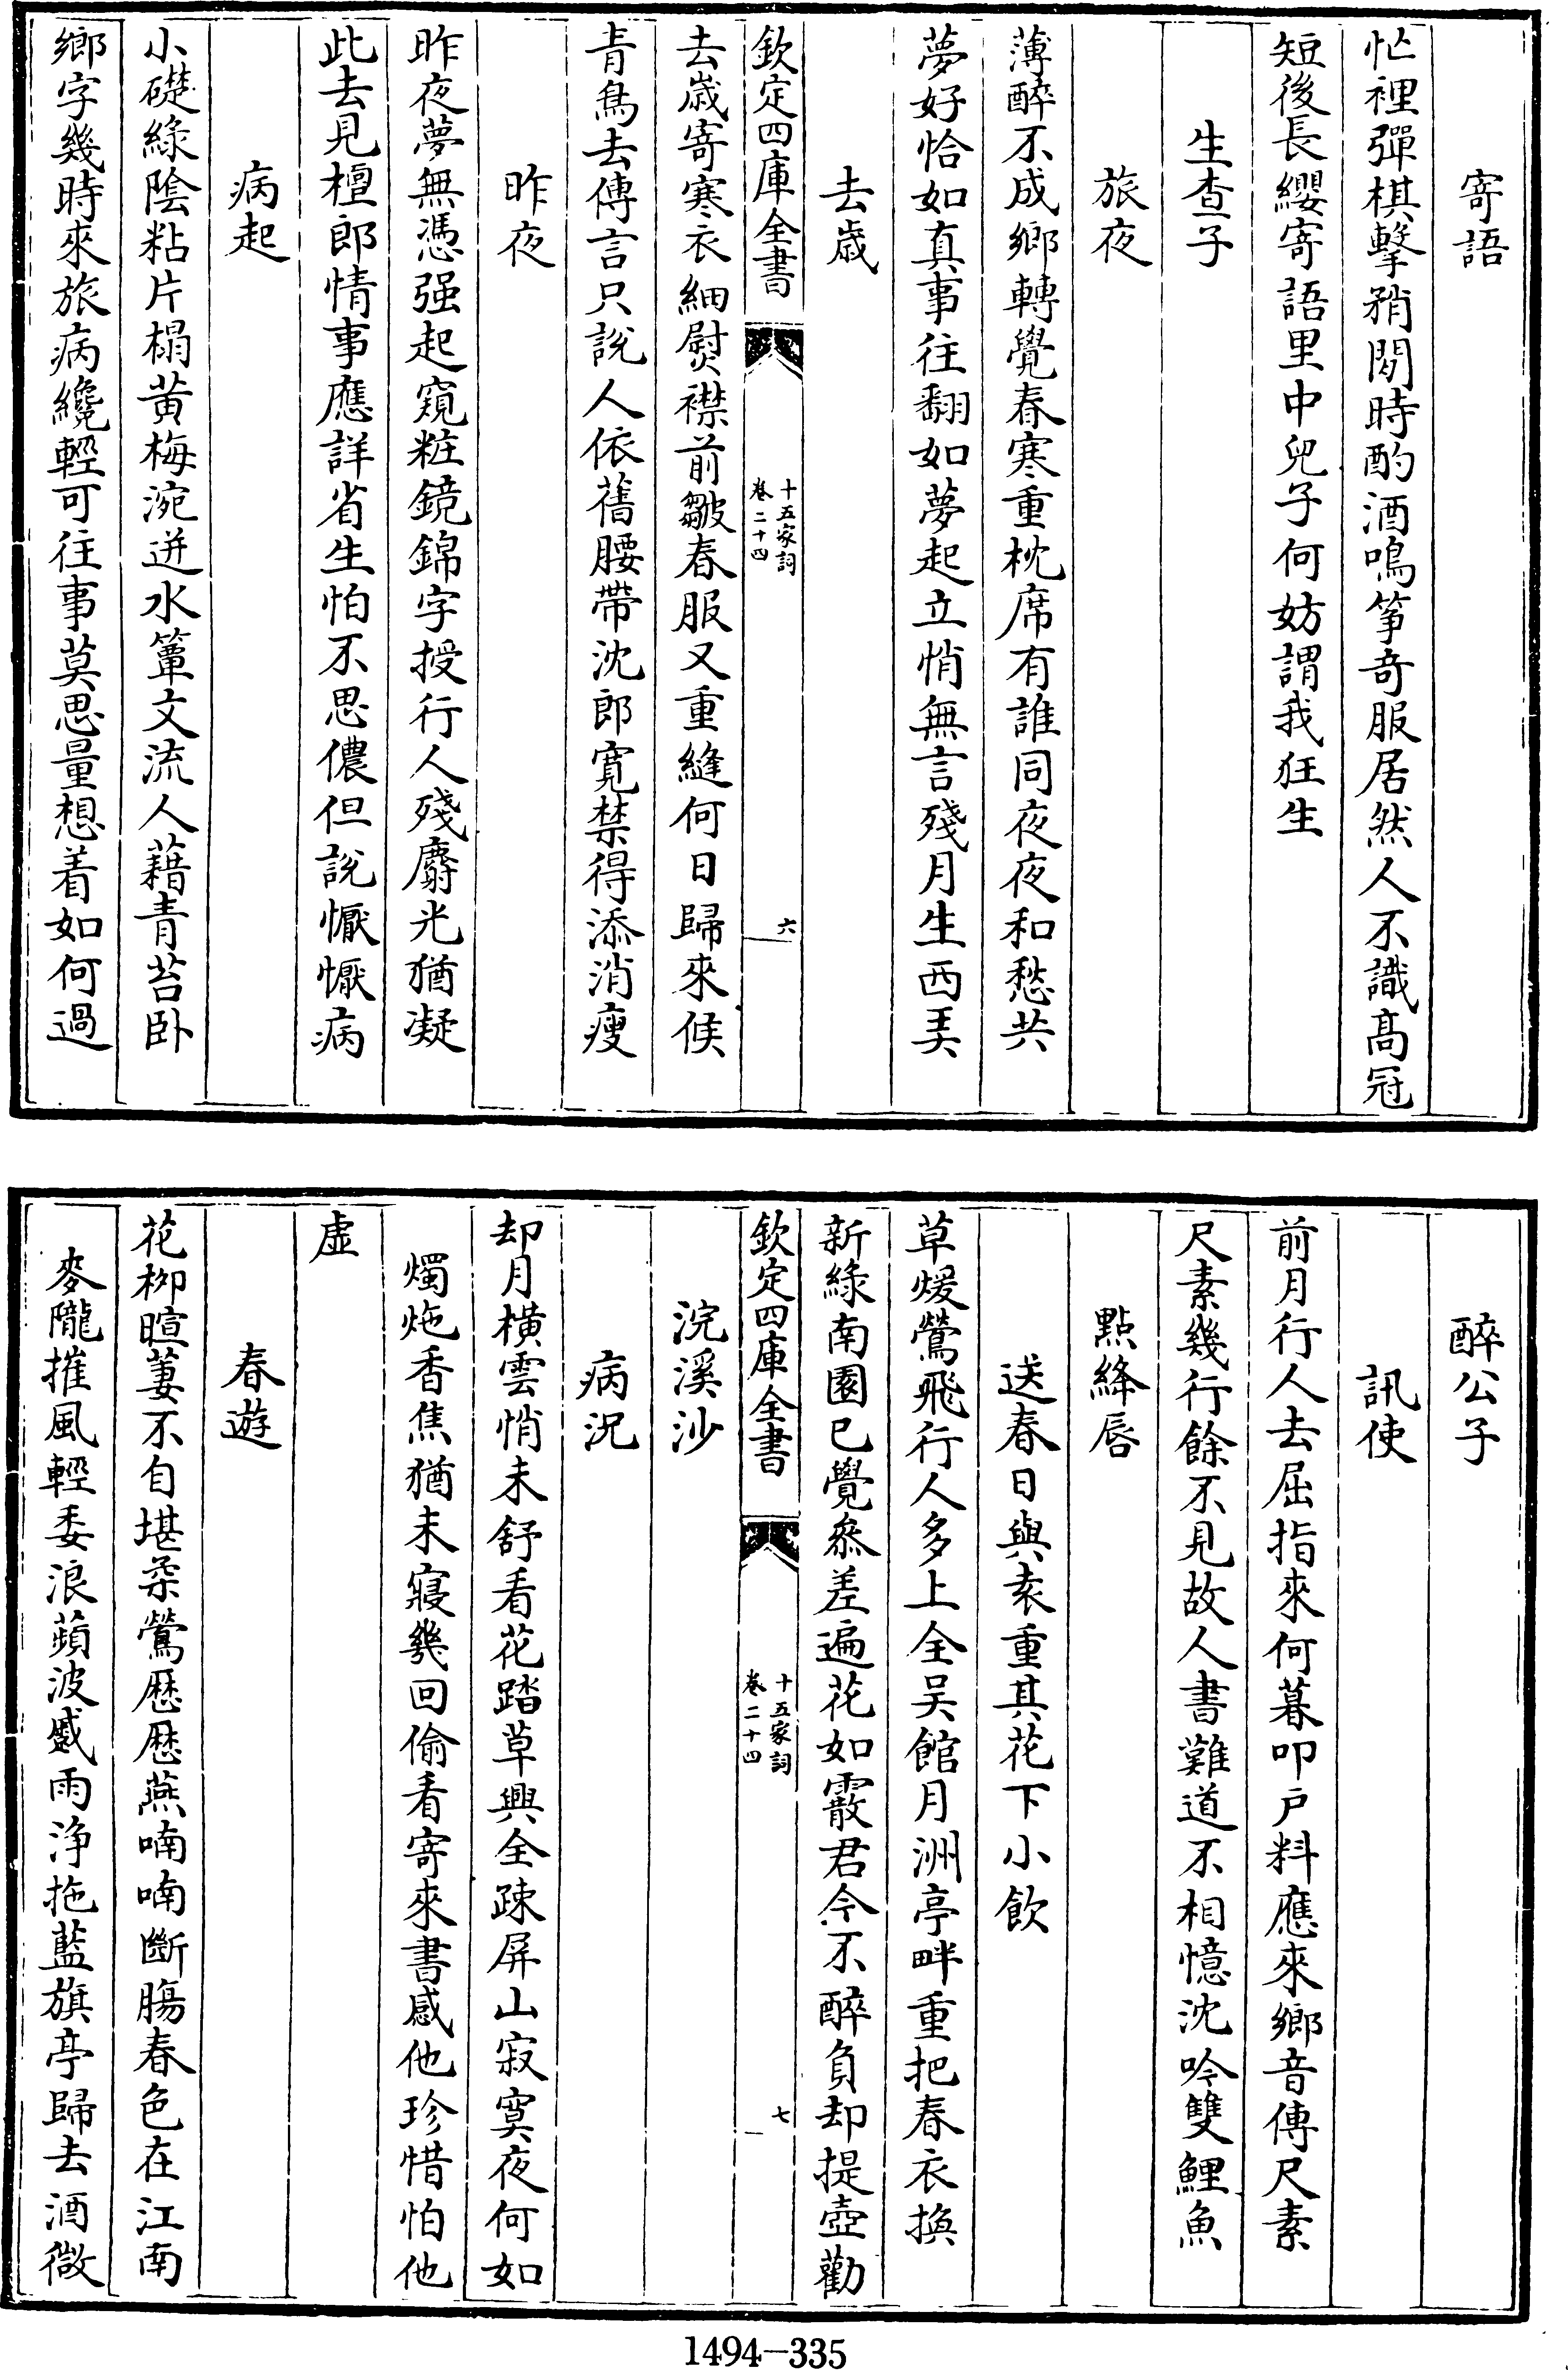 寄語
忙裡彈棋擊矟閒時酌酒鳴筝竒服居然人不識髙冠
短後長纓寄語里中兒子何妨謂我狂生
生查子
旅夜
薄醉不成鄉轉覺春寒重枕席有誰同夜夜和愁共
夢好恰如真事往翻如夢起立悄無言殘月生西𢍰
去歳
欽定四庫全書
十五家詞
卷二十四
六
去歳寄寒衣細熨襟前皺春服又重縫何日歸來候
青鳥去傳言只說人依舊腰帶沈郎寛禁得添消瘦
昨夜
昨夜夢無憑强起窺粧鏡錦字授行人殘麝光猶凝
此去見檀郎情事應詳省生怕不思儂但說懨懨病
病起
小礎綠陰粘片榻黄梅涴迸水簟文流人藉青苔卧
鄉字幾時來旅病纔輕可往事莫思量想着如何過
醉公子
訊使
前月行人去屈指來何暮叩户料應來鄉音傳尺素
尺素幾行餘不見故人書難道不相憶沈吟雙鯉魚
點絳唇
送春日與袁重其花下小飲
草煖鶯飛行人多上全吴館月洲亭畔重把春衣換
新綠南園已覺叅差遍花如霰君今不醉負却提壺勸
欽定四庫全書
十五家詞
卷二十四
七
浣溪沙
病況
却月横雲悄未舒看花踏草興全疎屏山寂寞夜何如
燭灺香焦猶未寢幾回偷看寄來書感他珍惜怕他
虚
春遊
花栁暄萋不自堪柔鶯歴歴燕喃喃斷腸春色在江南
麥隴摧風輕委浪蘋波蹙雨浄拖藍旗亭歸去酒微
1494-335